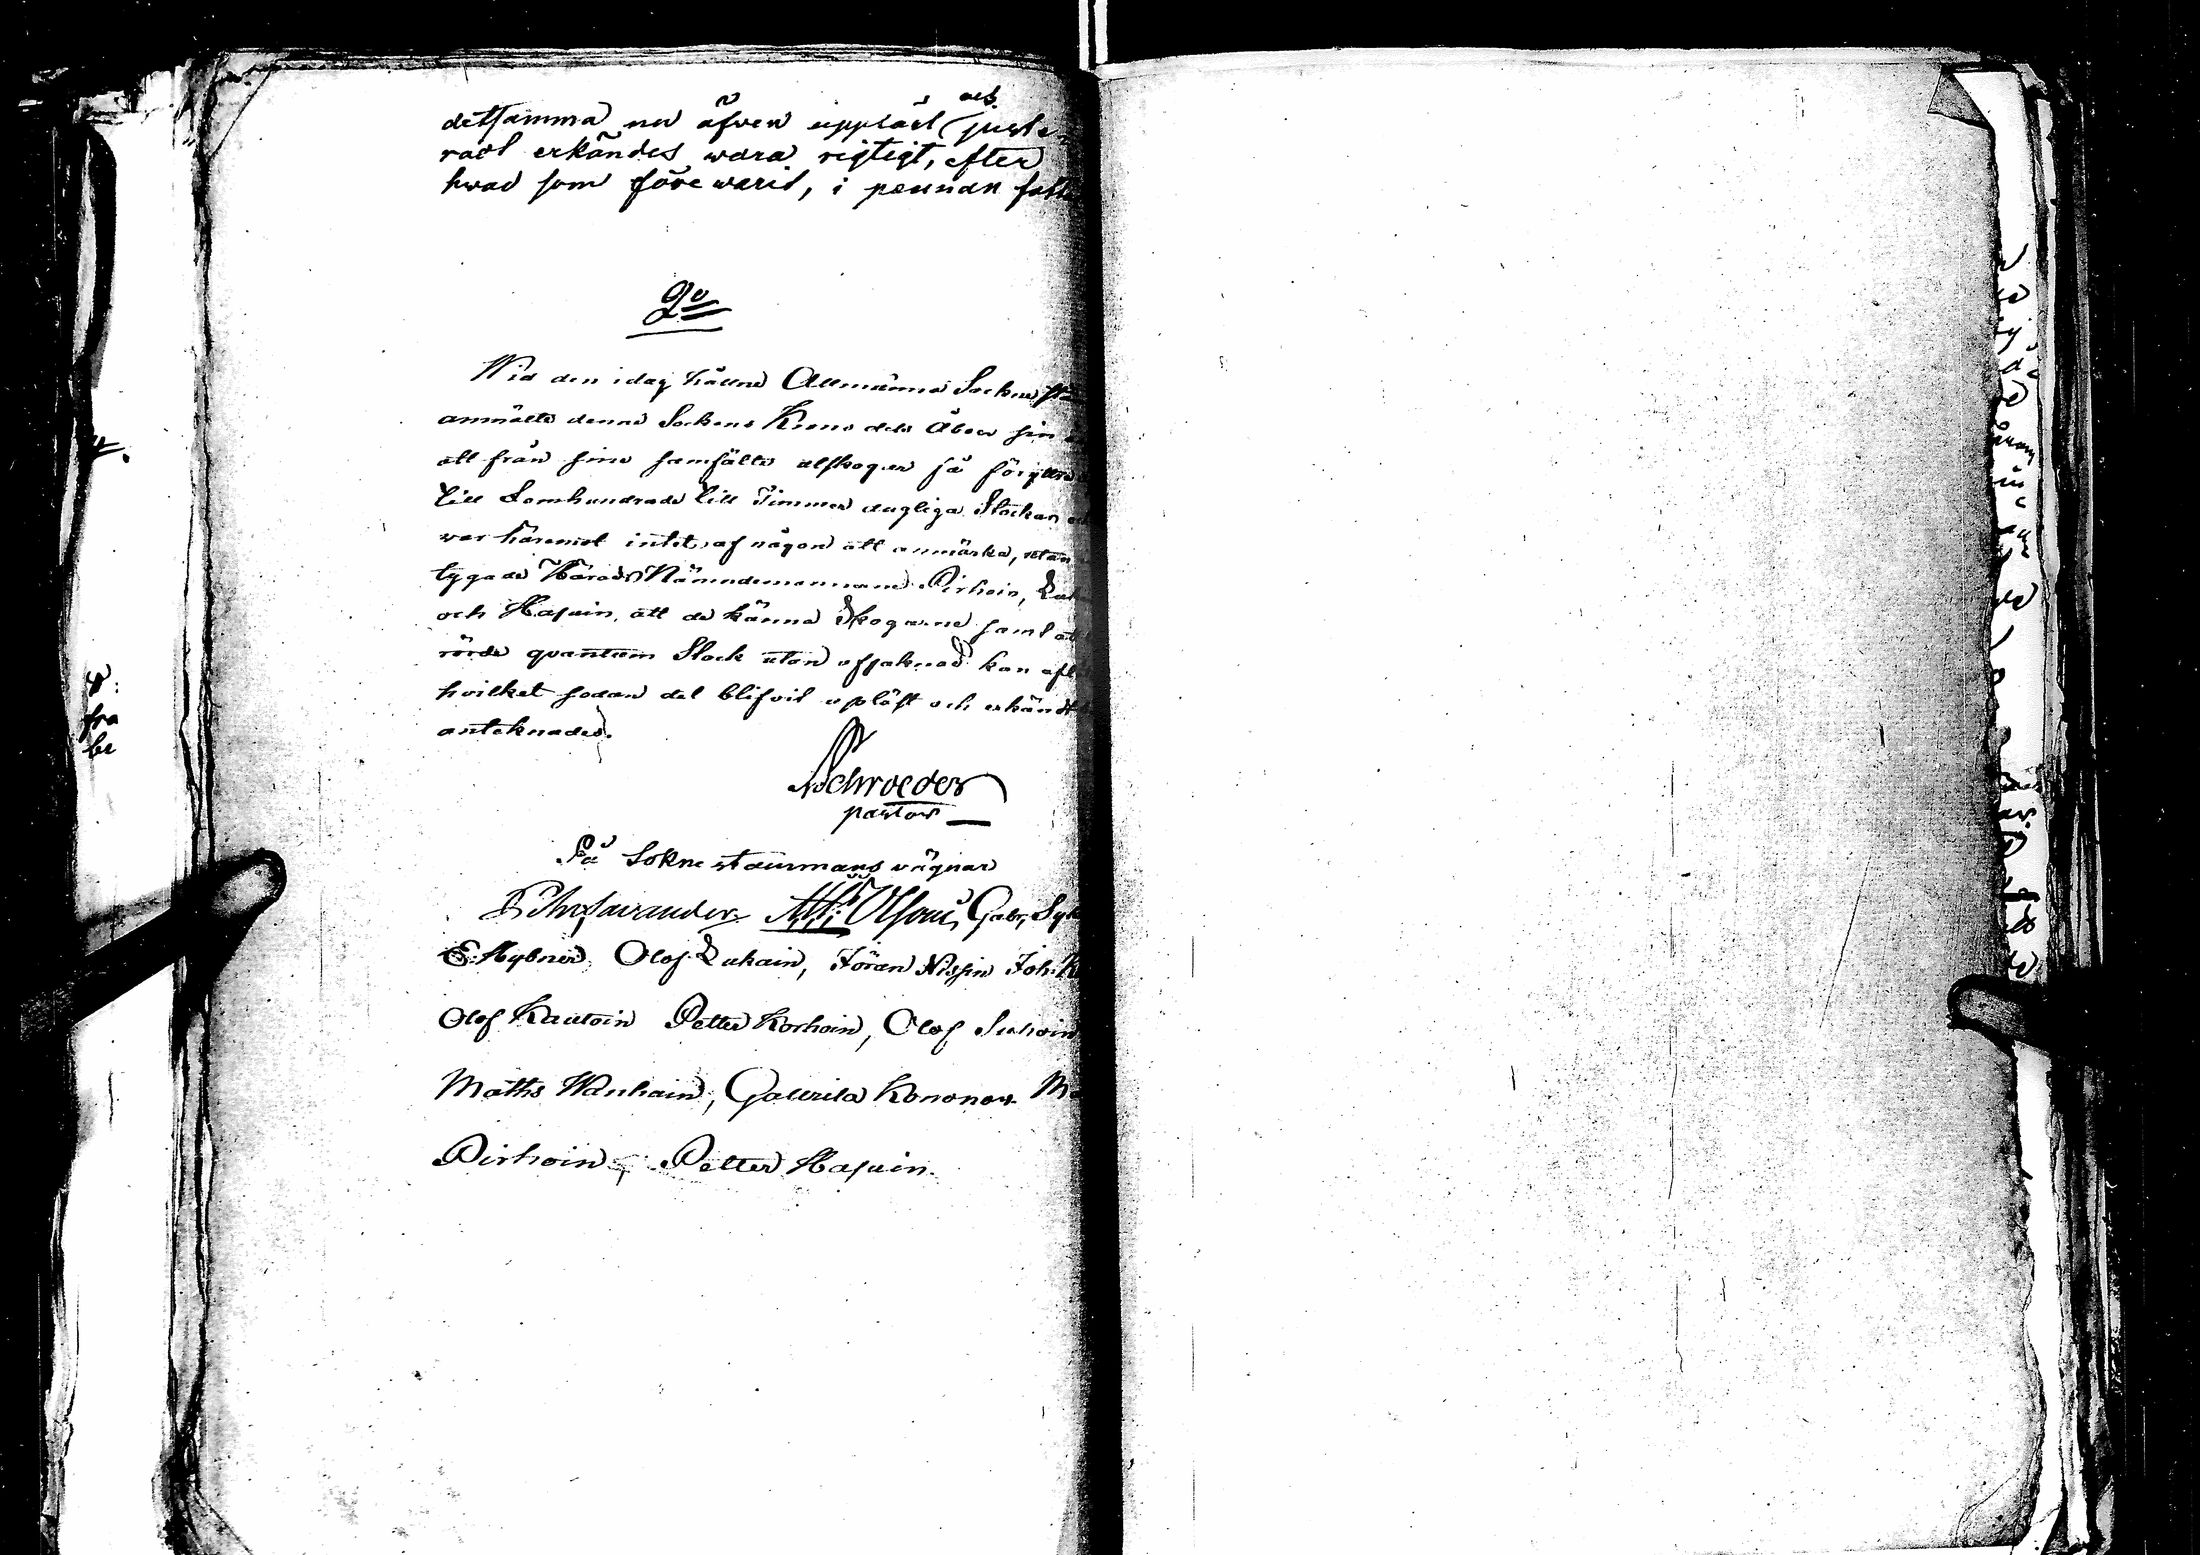 detsamma nu äfven uppläst och juste-
radt erkändes wara rigtigt, efter
hwad som före warit, i pennan fatt
2o
Wid den idag hållne Allmänna Socknestä
anmälte denne Sockens Krono dels Åboer sin
att från sine samfälte utskogar få försyttra
till Semhundrade till Timmer dugliga Stockar och
war häremot intet af någon att anmärka, utan
tygade Härads Nämndemännerne Pirhoin, Luk
och Hajuin, att de känna Skogarne samt att
rörde quantum Stock utan afsaknad kan afl
hvilket sedan det blifvit upläst och erkändt
anteknades.
Schroeder
pastor
På Soknestämmans vägnar
Savander Olsoni, Gabr, Syk
E. Hybner, Olof Lukain, Jöran Nissin Joh: K
Olof Kautoin Petter Korhoin, Olof Suhoin
Maths Wanhain, Gabriel Kononen Ma
Pirhoin, Petter Hajuin.
fra
be